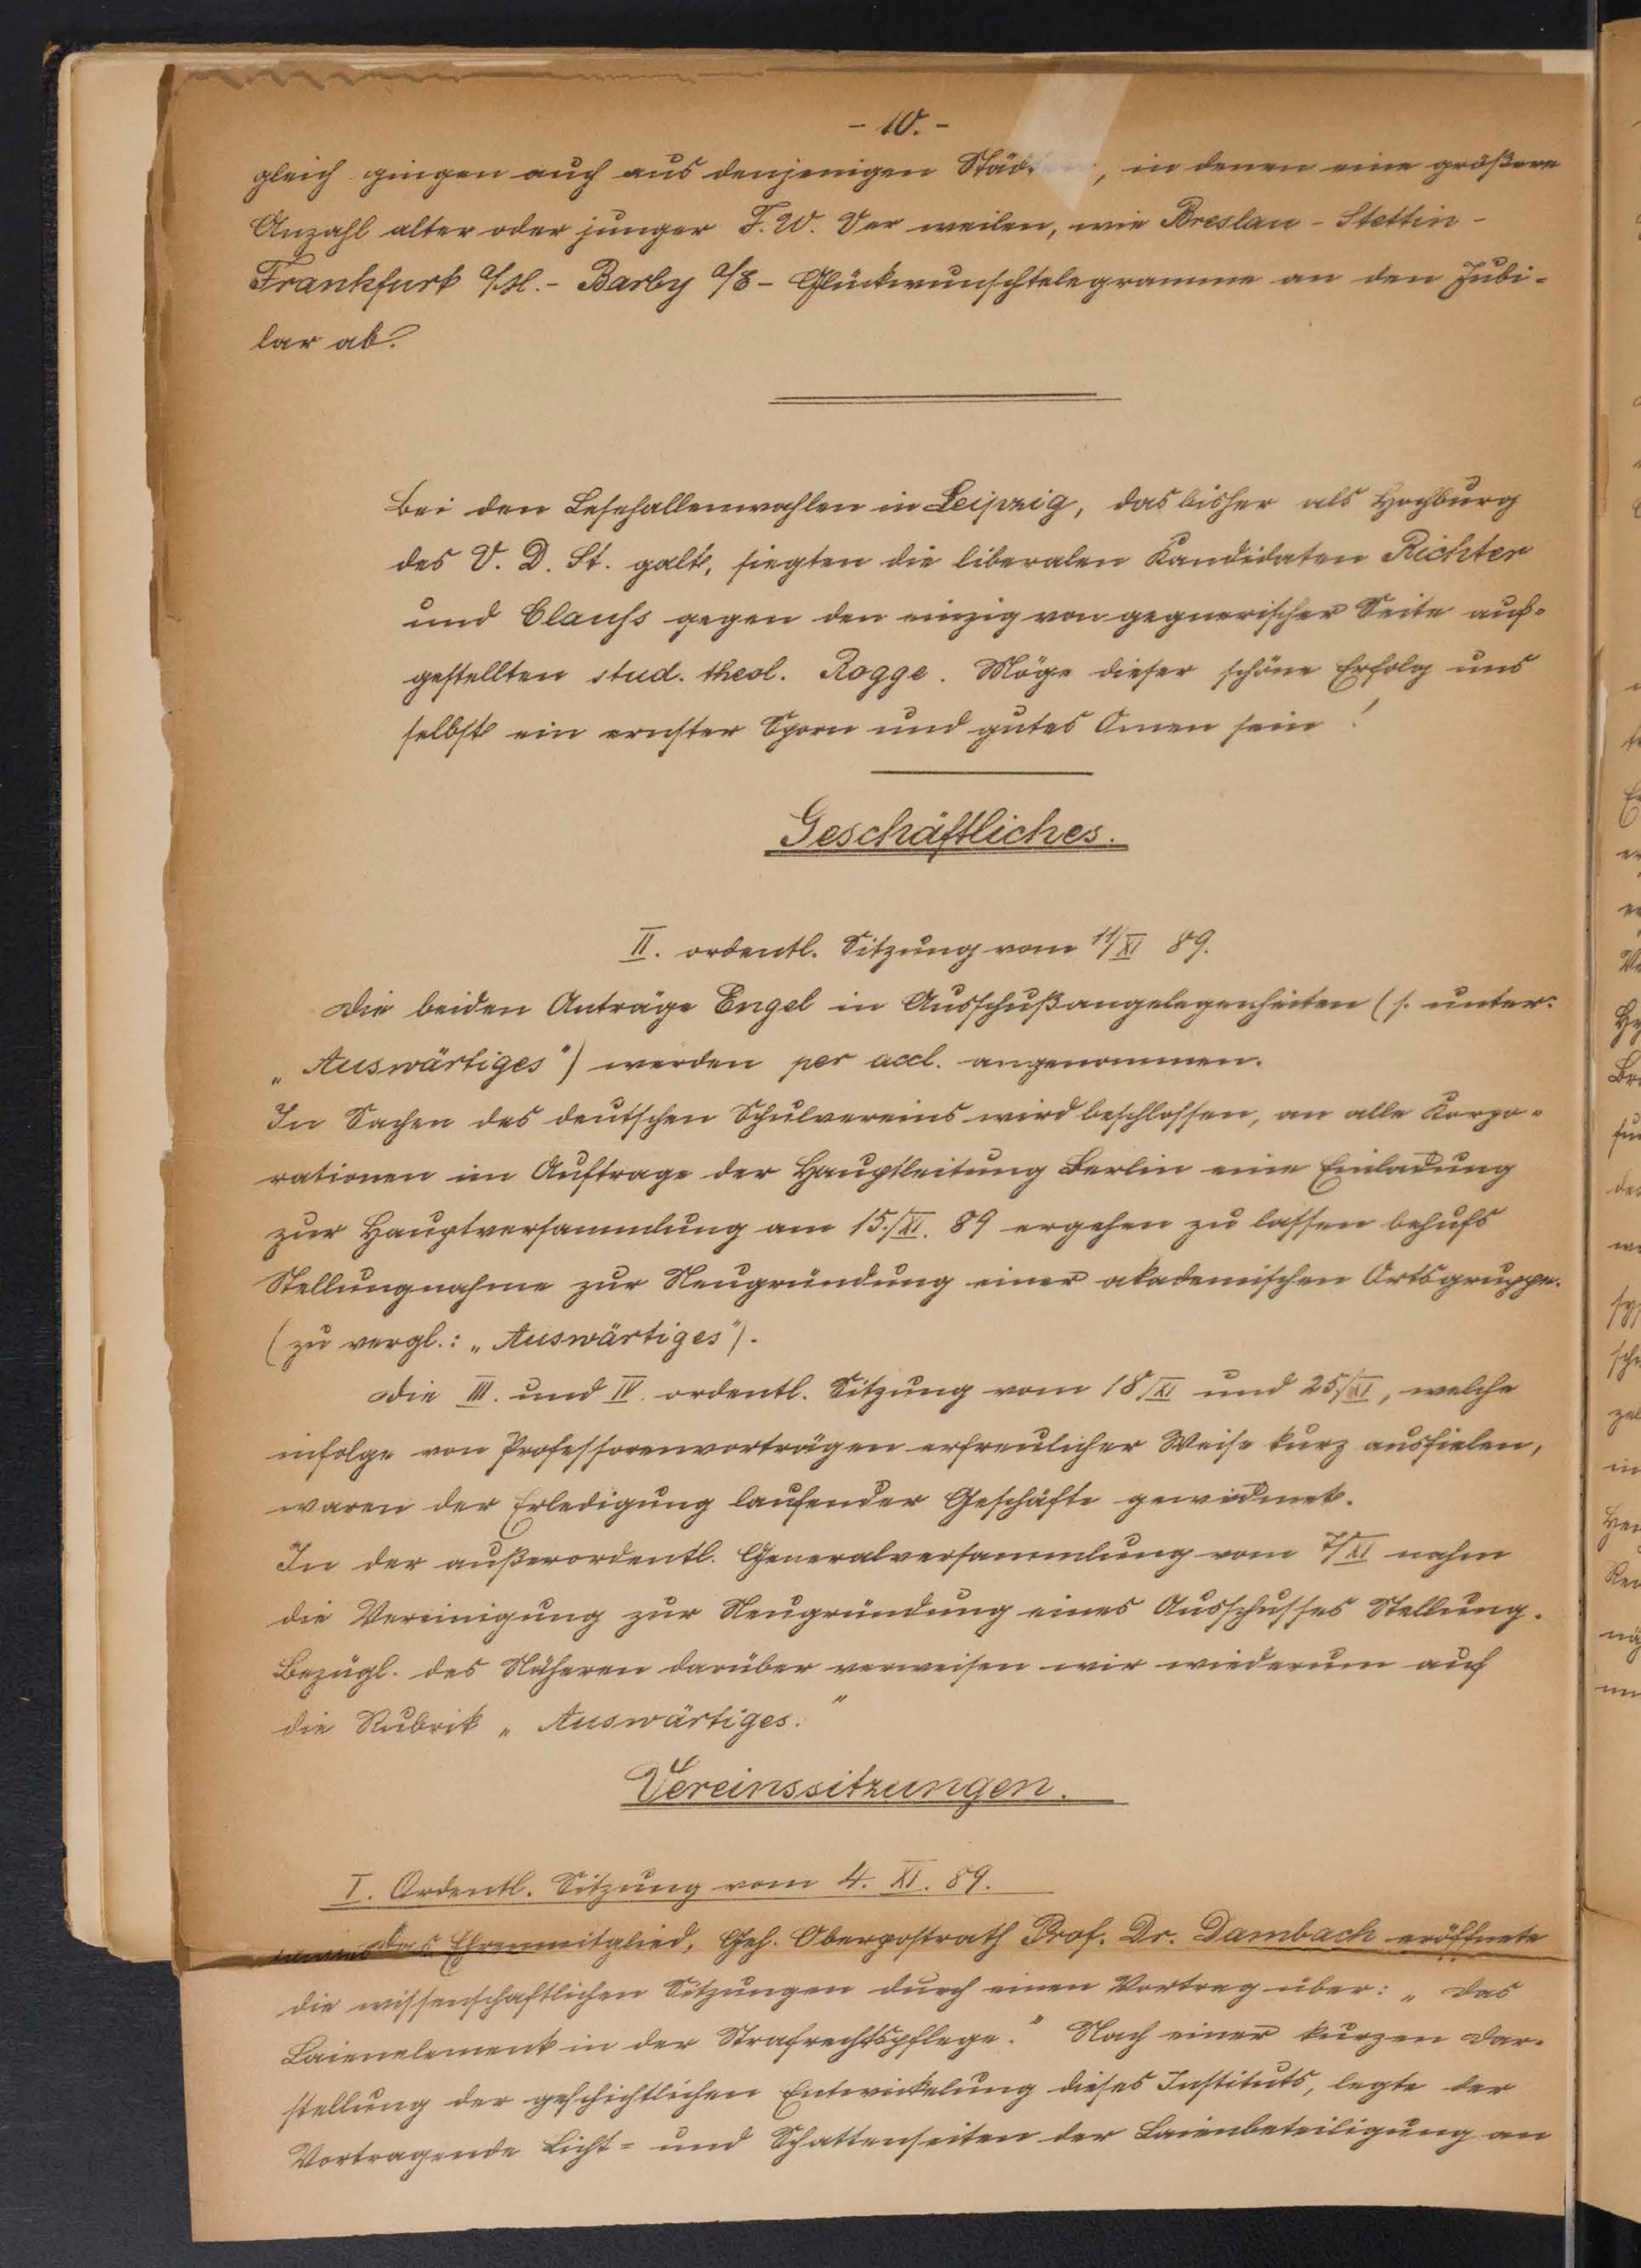 - 10. -
gleich gingen auch aus denjenigen Städten, in denen eine größere
Anzahl alter oder junger F. W. Ver weilen, wie Breslau - Stettin -
Frankfurt a/M. - Barby a/E - Glückwunschtelegramme an den Jubi-
lar ab.
Bei den Lesehallenwahlen in Leipzig, das bisher als Hochburg
des V. D. St. galt, siegten die liberalen Kandidaten Richter
und Clauss gegen den einzig von gegnerischer Seite auf-
gestellten stud. theol. Rogge. Möge dieser schöne Erfolg uns
selbst ein ernster Sporn und gutes Omen sein!
Geschäftliches.
II. ordentl. Sitzung vom 11/XI 89.
Die beiden Anträge Engel in Ausschußangelegenheiten (s. unter:
„Auswärtiges") werden per accl. angenommen.
In Sachen des deutschen Schulvereins wird beschlossen, an alle Korpo-
rationen im Auftrage der Hauptleitung Berlin eine Einladung
zur Hauptversammlung am 15./XI. 89 ergehen zu lassen behufs
Stellungnahme zur Neugründung einer akademischen Ortsgruppe.
(zu vergl.: „Auswärtiges").
Die III. und IV. ordentl. Sitzung vom 18/XI und 25/XI, welche
infolge von Professorenvorträgen erfreulicher Weise kurz ausfielen,
waren der Erledigung laufender Geschäfte gewidmet.
In der außerordentl. Generalversammlung vom 7/XI nahm
die Vereinigung zur Neugründung eines Ausschusses Stellung.
Bezügl. des Näheren darüber verweisen wir wiederum auf
die Rubrik „Auswärtiges."
Vereinssitzungen.
I. Ordentl. Sitzung vom 4. XI. 89.
Das Ehrenmitglied, Geh. Oberpostrath Prof. Dr. Dambach eröffnete
die wissenschaftlichen Sitzungen durch einen Vortrag über: „Das
Laienelement in der Strafrechtspflege." Nach einer kurzen Dar-
stellung der geschichtlichen Entwickelung dieses Instituts, legte der
Vortragende Licht- und Schattenseiten der Laienbeteiligung an